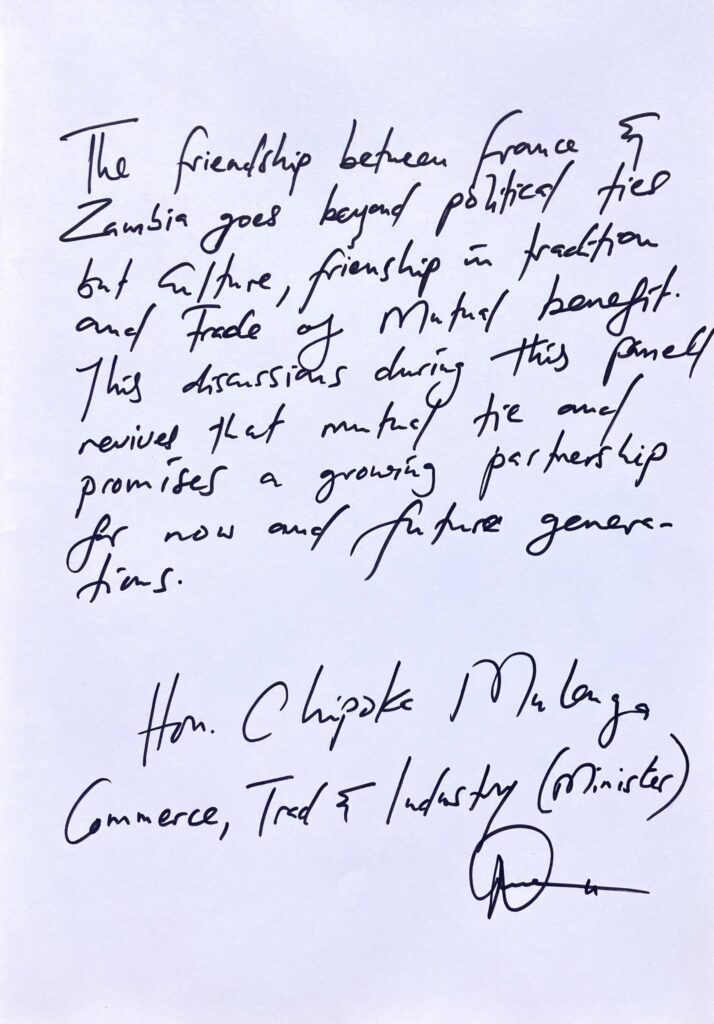 The friendship between France &
Zambia goes beyond political ties
but Culture, frienship in tradition
and Trade of Mutual benefit.
This discussions during this panell
revives that mutual tie and
promises a growing partnership
for now and future genera-
tions.
Hon. Chipoka Mulenga
Commerce, Trad & Industry (Minister)